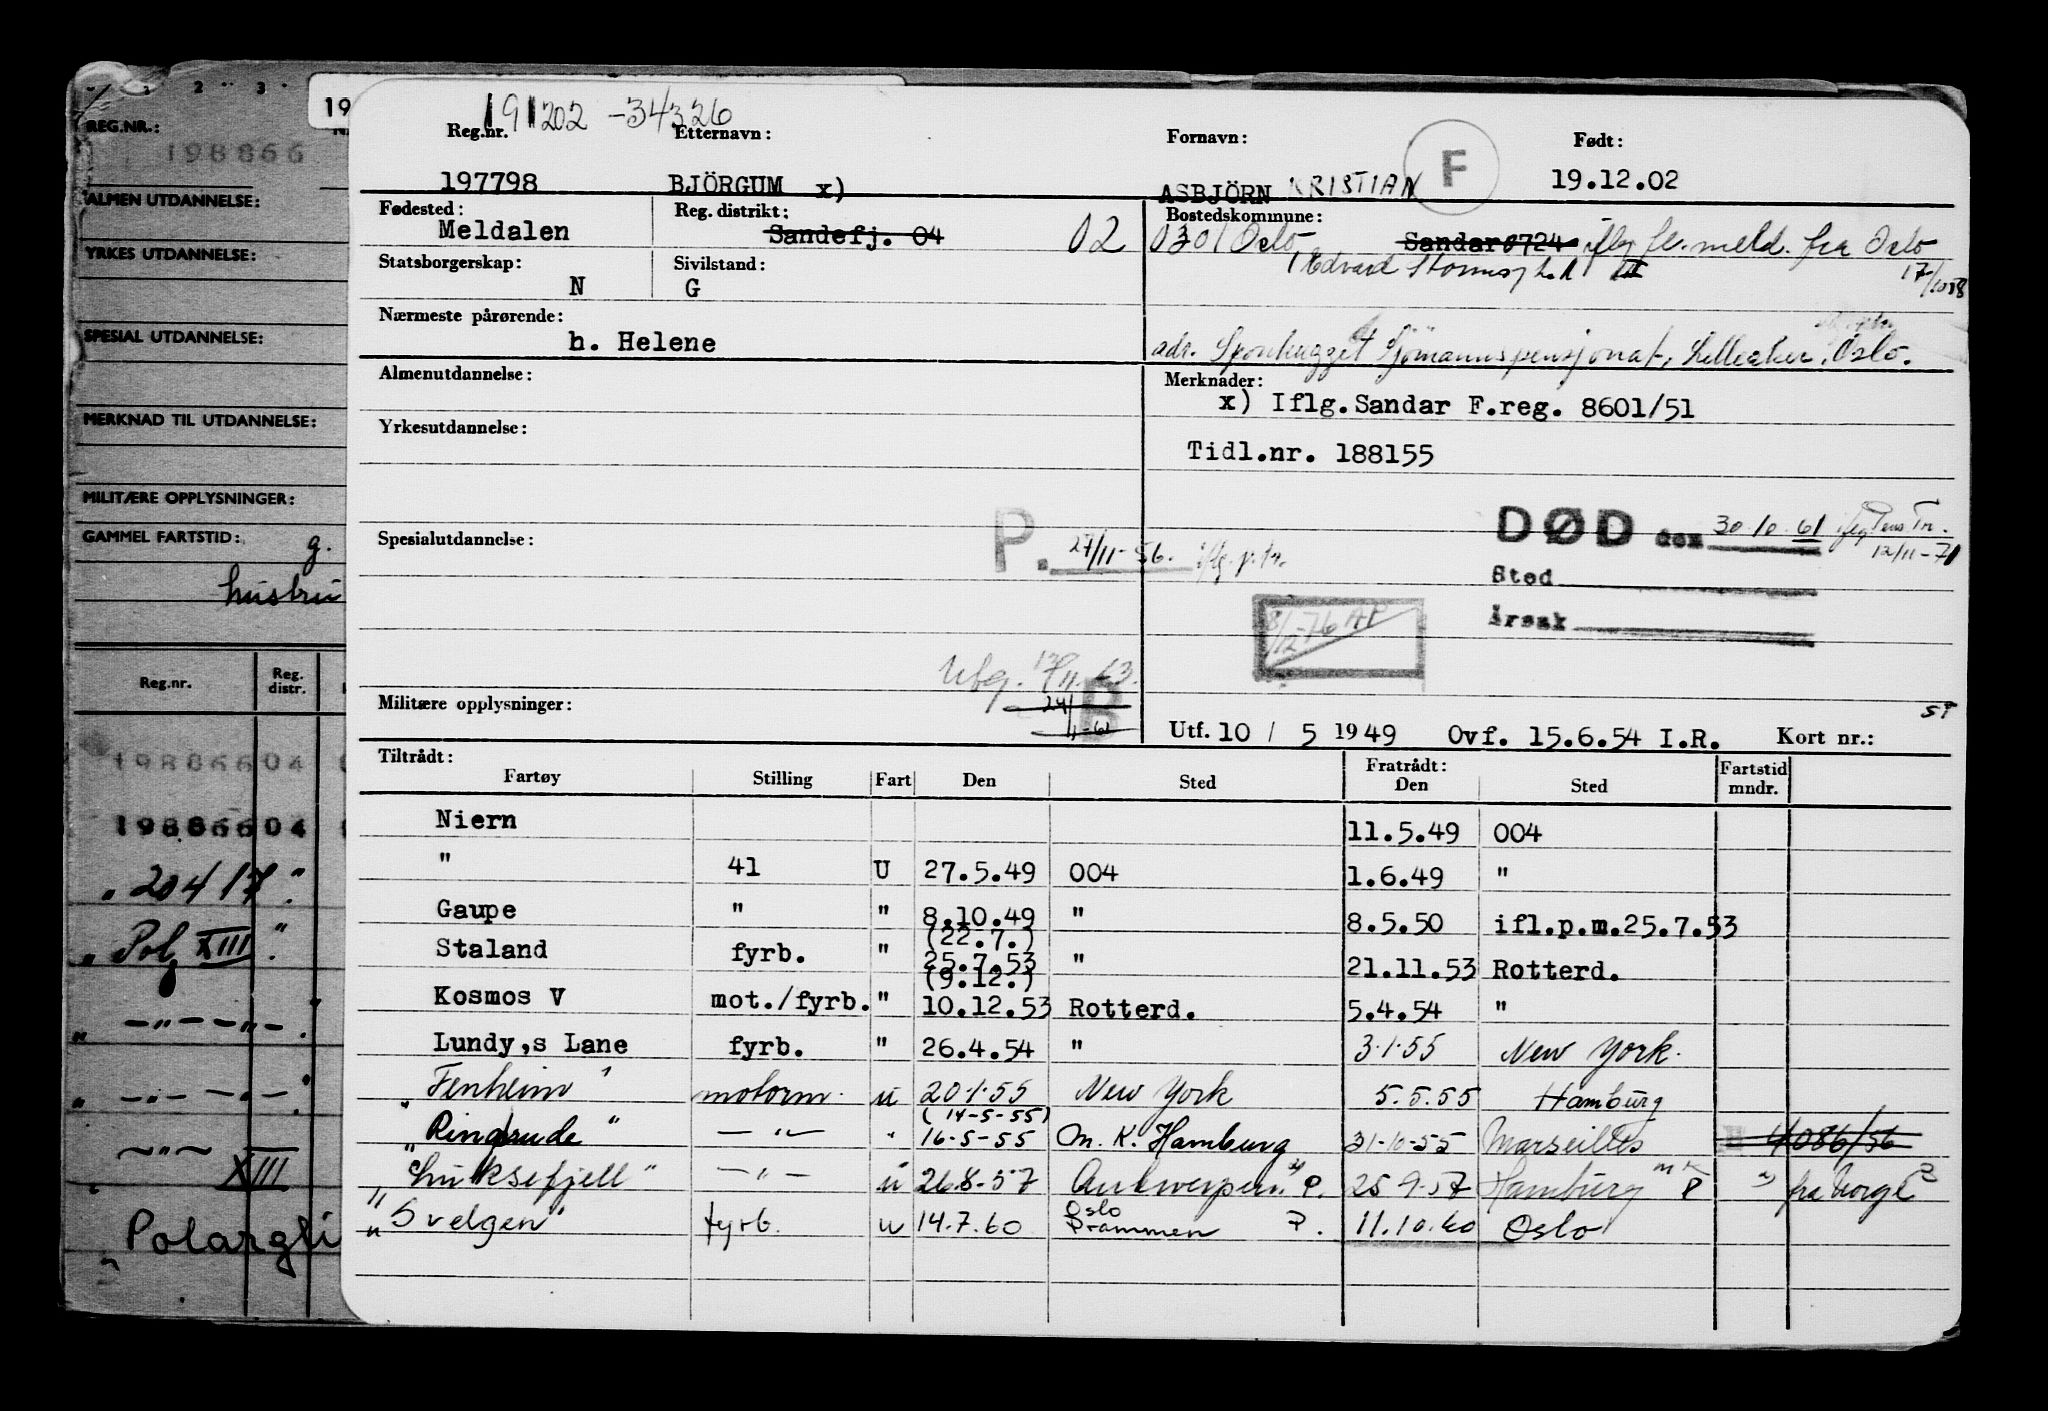 2 3
REG.NR.:
198866
ALMEN UTDANNELSE:
YRKES UTDANNELSE:
SPESIAL UTDANNELSE:
MERKNAD TIL UTDANNELSE:
MILITÆRE OPPLYSNINGER:
GAMMEL FARTSTID: g.
hustru
Reg.nr. Reg. distr.
19886604
19886604
" 20417 "
" Pol XIII "
" — " — " — "
" — " — " — "
— " — XIII
" Polargli
19
191202 - 34326
Reg.nr. Etternavn: Fornavn: F Født:
197798 BJÖRGUM x) ASBJÖRN KRISTIAN 19.12.02
Fødested: Reg. distrikt: Bostedskommune:
Meldalen Sandefj. 04 02 0301 Oslo Sandar 0724 iflg fl. meld. fra Oslo
Edvard Storms III 17/10 58
Statsborgerskap: Sivilstand:
N G
Nærmeste pårørende:
h. Helene adr. Sjömannspensjonat, Lilleaker, Oslo.
Almenutdannelse: Merknader:
x) Iflg. Sandar F.reg. 8601/51
Yrkesutdannelse:
Tidl.nr. 188155
Spesialutdannelse: P. 27/11-56. iflg. p.tr.
DØD den 30.10.61 iflg Pens Tr. 12/11-71
Sted
Årsak
8/12-76 AP
Utg. 63.
B
Militære opplysninger: Utf. 10 / 5 1949 Ovf. 15.6.54 I.R. Kort nr.:
Tiltrådt: Fratrådt: Fartstid
Fartøy Stilling Fart Den Sted Den Sted mndr.
Niern 11.5.49 004
" 41 U 27.5.49 004 1.6.49 "
Gaupe " " 8.10.49 " 8.5.50 ifl.p.m.25.7.53
(22.7.)
Staland fyrb. " 25.7.53 " 21.11.53 Rotterd.
(9.12.)
Kosmos V mot./fyrb. " 10.12.53 Rotterd. 5.4.54 "
Lundy,s Lane fyrb. " 26.4.54 " 3.1.55 New York.
"Fenheim" motorm. u 20.1.55 New York 5.5.55 Hamburg
(14-5-55)
"Ringsrude" — " — " 16-5-55 m. K. Hamburg 31-10-55 Marseilles 4086/56
"Luksefjell" — " — u 26.8.57 Antwerpen P. 25 9.57 Hamburg P fra Norge
"Svelgen" fyrb. u 14.7.60 Oslo Drammen P. 11.10.60 Oslo